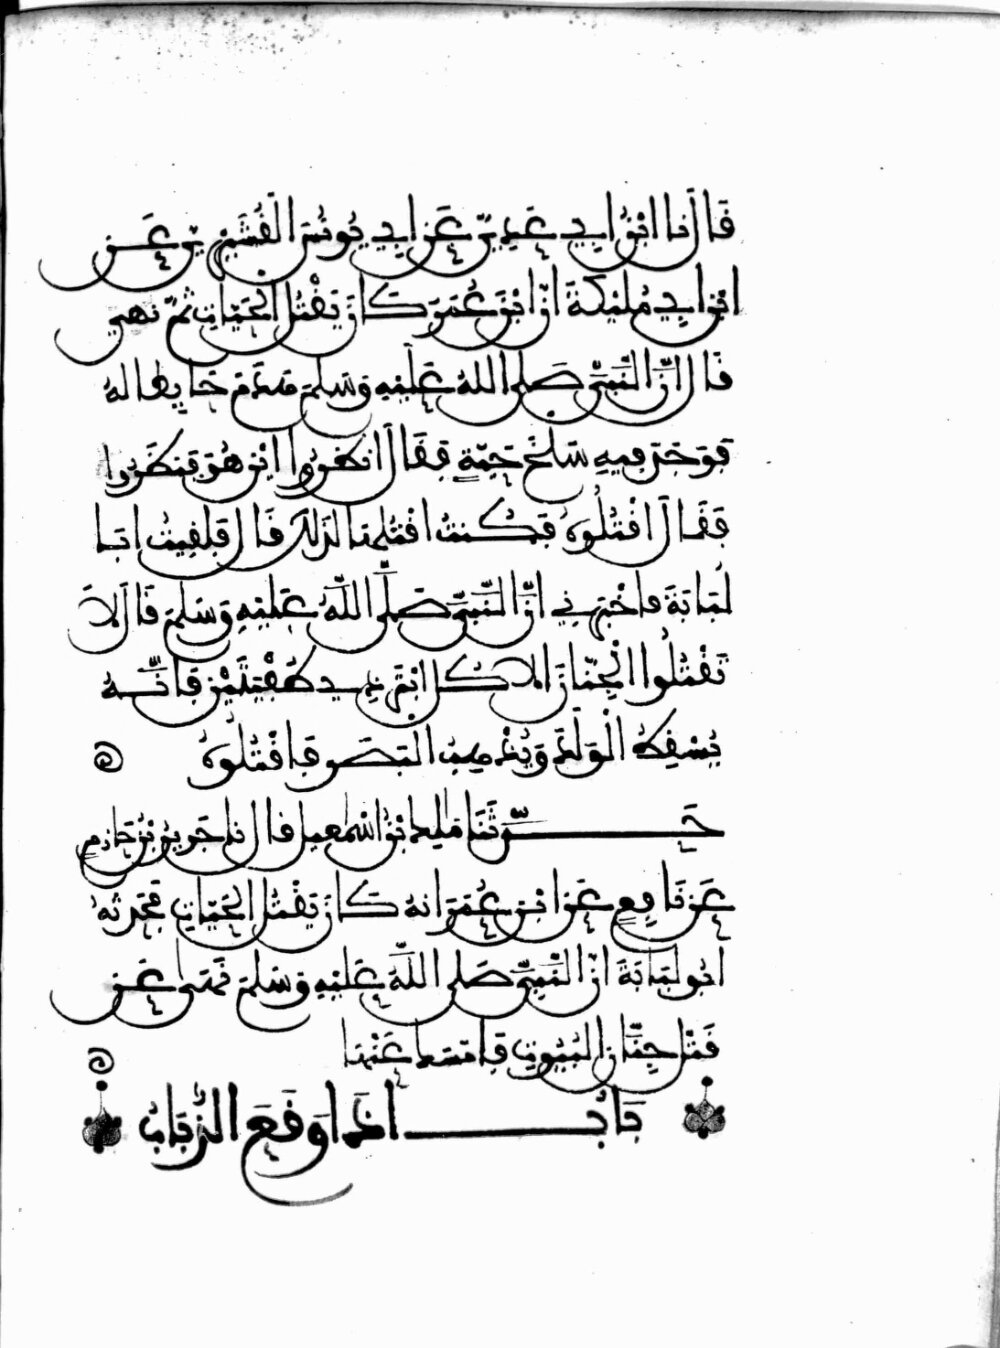 قَالَ نا ابْنُ ابِي عَدِيٍّ عَن ابِي يُونُسَ الْقُشَيْرِيِّ عَن
ابْنِ ابِي مُلَيْكَةَ انَّ ابْنَ عُمَرَ كَانَ يَقْتُلُ الْحَيَّاتِ ثُمَّ نَهَى
قَالَ انَّ النَّبِيَّ صَلى اللهُ عَلَيْهِ وَسَلمَ هَدَمَ حَايطا لهُ
فَوَجَدَ فِيهِ سَلْخَ حَيَّةٍ فَقَالَ انظُرُوا ايْنَ هُوَ فَنَظَرُوا
فَقَالَ اقْتُلُوهُ فَكُنتُ اقْتُلهَا لِذَلِكَ قَالَ فَلَقِيتُ ابَا
لُبَابَةَ فاخْبَرَنِي انَّ النَّبِيَّ صَلَّى اللَّهُ عَلَيْهِ وَسَلمَ قَالَ لَا
تَقْتُلُوا الْجِنَّانَ الا كُلَّ ابْتَرَ ذِي طُفْيَتَيْنِ فَانَّهُ
يُسْقِطُ الْوَلَدَ وَيُذْهِبُ الْبَصَرَ فَاقْتُلُوهُ
حَدَّثَنَا مَالِكُ ابْنُ اسْمَعِيلَ قَالَ نا جَرِيرُ بْنُ حَازِمٍ
عَن نَافِعٍ عَن ابْنِ عُمَرَ انهُ كَانَ يَقْتُلُ الْحَيَّاتِ فَحَدثَهُ
ابُو لُبَابَةَ انَّ النَّبِيَّ صَلى اللَّهُ عَلَيْهِ وَسَلمَ نَهَى عَن
قَتْلِ جِنَّانِ الْبُيُوتِ فَامْسَكَ عَنْهَا
بَابُ اذَا وَقَعَ الذُّبَابُ